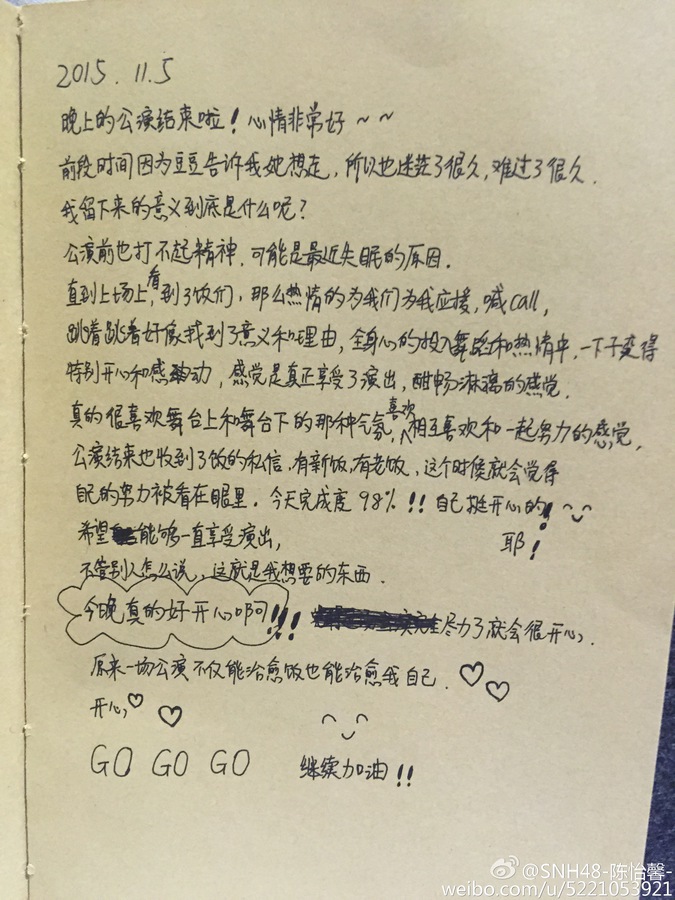 2015.11.5
晚上的公演结束啦！心情非常好~~
前段时间因为豆豆告诉我她想走，所以也迷茫了很久，难过了很久.
我留下来的意义到底是什么呢？
公演前也打不起精神，可能是最近失眠的原因.
直到上场上，看到了饭们，那么热情的为我们为我应援，喊call，
跳着跳着好像找到了意义和理由，全身心的投入舞蹈和热情中，一下子变得
特别开心和感动，感觉是真正享受了演出，酣畅淋漓的感觉.
真的很喜欢舞台上和舞台下的那种气氛，喜欢相互喜欢和一起努力的感觉，
公演结束也收到了饭的私信，有新饭，有老饭，这个时候就会觉得
自己的努力被看在眼里. 今天完成度98%!! 自己挺开心的!
希望能够一直享受演出， 耶！
不管别人怎么说，这就是我想要的东西.
今晚真的好开心啊!!! 尽力了就会很开心.
原来一场公演不仅能治愈饭也能治愈我自己. ♡♡
开心♡ ♡
GO GO GO 继续加油!!
@SNH48-陈怡馨-
weibo.com/u/5221053921